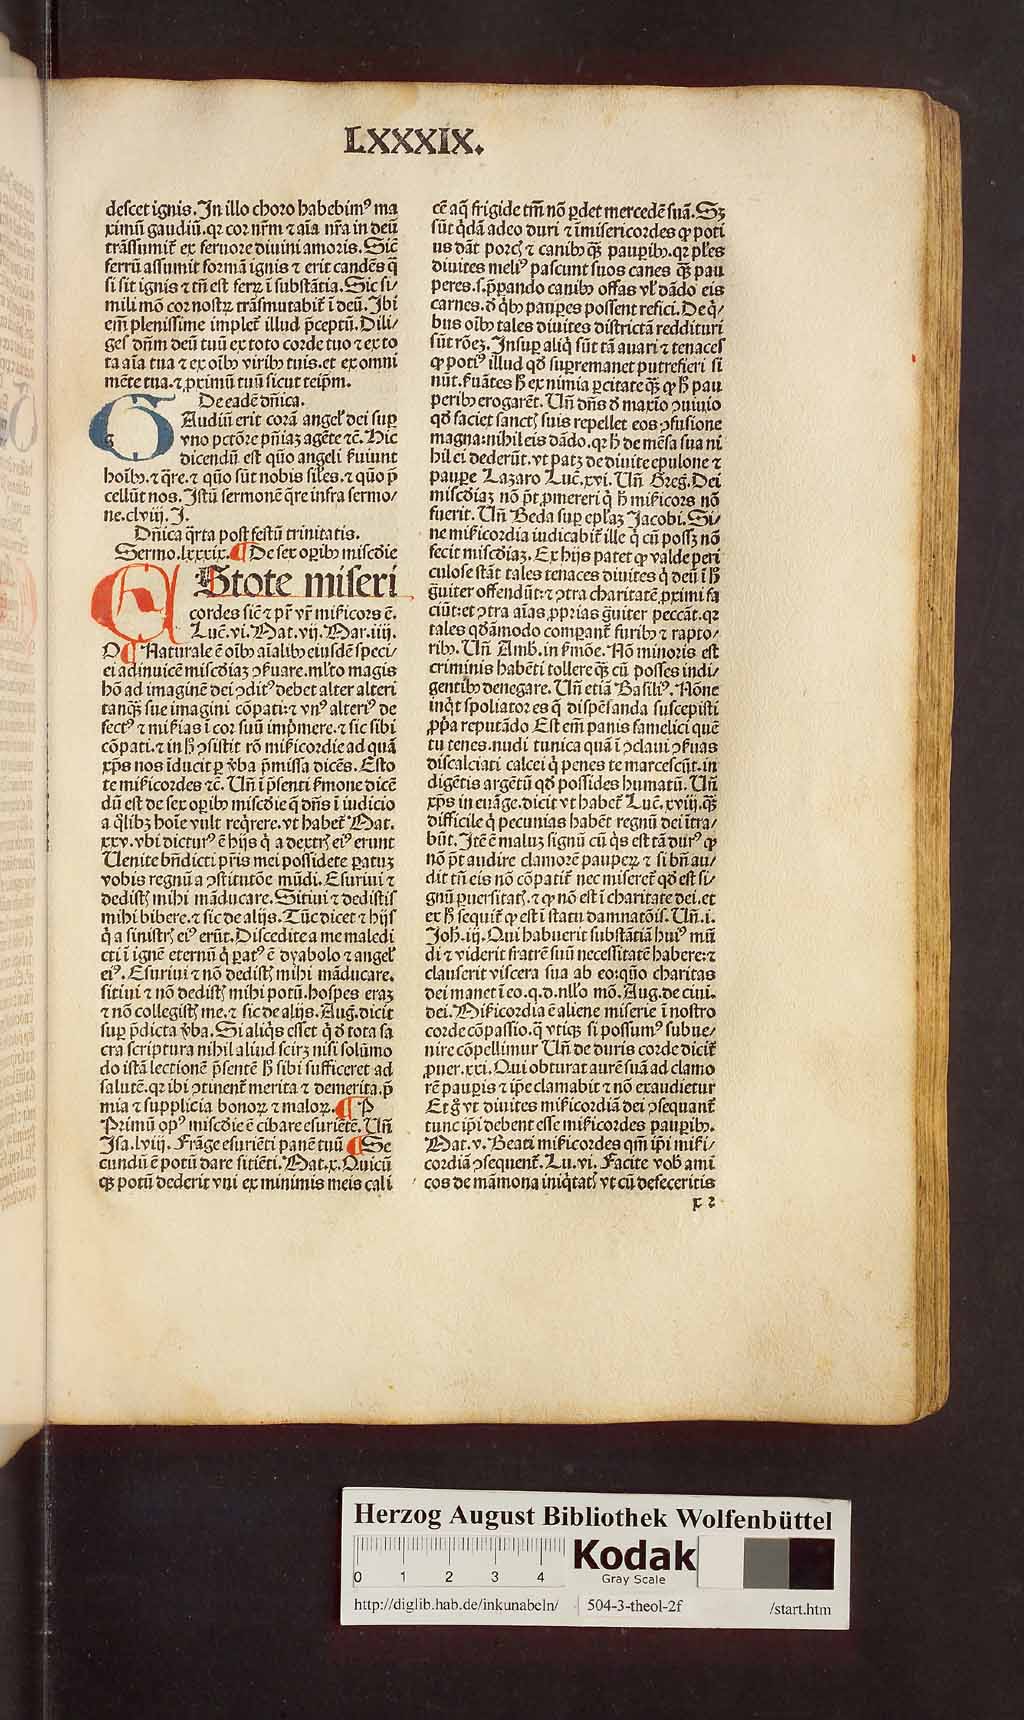 LXXXIX.
descet ignis. In illo choro habebimꝰ ma
ximū gaudiū. qr cor nr̄m ⁊ aīa nr̄a in deū
trāssumit̄ ex feruore diuini amoris. Sic̄
ferrū assumit formā ignis ⁊ erit candēs q̄
si sit ignis ⁊ tn̄ est ferꝝ ī substātia. Sic si⸗
mili mō cor nostꝝ trāsmutabit̄ ī deū. Ibi
em̄ plenissime implet̄ illud p̄ceptū. Dili⸗
ges dn̄m deū tuū ex toto corde tuo ⁊ ex to
ta aīa tua ⁊ ex oīb⁹ virib⁹ tuis. et ex omni
mēte tua. ⁊ ꝓximū tuū sicut teip̄m.
De eadē dn̄ica.
GAudiū erit corā angel̓ dei suꝑ
vno pctōre pn̄iaꝫ agēte ⁊c̄. Hic
dicendū est quō angeli ẜuiunt
hoīb⁹. ⁊ q̄re. ⁊ quō sūt nobis sil̓es. ⁊ quō p̄
cellūt nos. Istū sermonē q̄re infra sermo⸗
ne. clviij. I.
Dn̄ica q̄rta post festū trinitatis.
Sermo. lxxxix. ¶ De sex oꝑib⁹ misc̄die
EStote miseri
cordes sic̄ ⁊ pr̄ vr̄ mīẜicors ē.
Luc̄. vi. Mat. vij. Mar. iiij.
¶ Naturale ē oīb⁹ aīalib⁹ eiusdē speci⸗
ei adinuicē misc̄diaꝫ ↄẜuare. ml̓to magis
hō ad imaginē dei ↄditꝰ debet alter alteri
tanqꝫ sue imagini cōpati: ⁊ vnꝰ alteriꝰ de
fectꝰ ⁊ mīẜias ī cor suū imp̓mere. ⁊ sic sibi
cōpati. ⁊ in h̄ ↄsistit rō mīẜicordie ad quā
xp̄s nos īducit ꝑ v̓ba p̄missa dicēs. Esto
te mīẜicordes ⁊c̄. Vn̄ ī p̄senti ẜmone dicē
dū est de sex oꝑib⁹ misc̄die q̄ dn̄s ī iudicio
a q̓libꝫ hoīe vult req̓rere. vt habet̄ Mat.
xxv. vbi dicturꝰ ē hijs q̓ a dextrꝭ eiꝰ erunt
Venite bn̄dicti pr̄is mei possidete ꝑatuꝫ
vobis regnū a ↄstitutōe mūdi. Esuriui ⁊
dedistꝭ mihi māducare. Sitiui ⁊ dedistis
mihi bibere. ⁊ sic de alijs. Tūc dicet ⁊ hijs
q̓ a sinistrꝭ eiꝰ erūt. Discedite a me maledi
cti ī ignē eternū q̓ ꝑatꝰ ē dyabolo ⁊ angel̓
eiꝰ. Esuriui ⁊ nō dedistꝭ mihi māducare.
sitiui ⁊ nō dedistꝭ mihi potū. hospes eraꝫ
⁊ nō collegistꝭ me. ⁊ sic de alijs. Aug̓. dicit
suꝑ p̄dicta v̓ba. Si aliq̓s esset q̓ d̓ tota sa
cra scriptura nihil aliud scirꝫ nisi solūmo
do istā lectionē p̄sentē h̄ sibi sufficeret ad
salutē. qr ibi ↄtinent̄ merita ⁊ demerita. p̄
mia ⁊ supplicia bonoꝝ ⁊ maloꝝ. ¶ P
Primū opꝰ misc̄die ē cibare esuriētē. Vn̄
Isa. lviij. Frāge esuriēti panē tuū ¶ Se
cundū ē potū dare sitiēti. Mat. x. Quicū
qꝫ potū dederit vni ex minimis meis cali
cē aq̄ frigide tm̄ nō ꝑdet mercedē suā. Sꝫ
sūt q̓dā adeo duri ⁊ īmisericordes ꝙ poti
us dāt porcꝭ ⁊ canib⁹ qꝫ̄ pauꝑib⁹. qr pl̓es
diuites meliꝰ pascunt suos canes qꝫ̄ pau
peres. s. p̄parando canib⁹ offas vl̓ dādo eis
carnes. d̓ q̓b⁹ pauꝑes possent refici. De q̓⸗
bus oīb⁹ tales diuites districtā reddituri
sūt rōeꝫ. Insuꝑ aliq̓ sūt tā auari ⁊ tenaces
ꝙ potiꝰ illud qd̓ suꝑremanet putrefieri si
nūt. ẜuātes h̄ ex nimia ꝑcitate qꝫ̄ ꝙ h̄ pau
perib⁹ erogarēt. Vn̄ dn̄s d̓ maxīo ↄuiuio
qd̓ faciet sanctꝭ suis repellet eos ↄfusione
magna: nihil eis dādo. qr h̄ de mēsa sua ni
hil ei dederūt. vt patꝫ de diuite epulone ⁊
pauꝑe Lazaro Luc̄. xvi. Vn̄ Greg̓. Dei
misc̄diaꝫ nō p̄t ꝓmereri q̓ h̄ mīẜicors nō
fuerit. Vn̄ Beda suꝑ ep̄laꝫ Jacobi. Si⸗
ne mīẜicordia iudicabit̄ ille q̓ cū possꝫ nō
fecit misc̄diaꝫ. Ex hijs patet ꝙ valde peri
culose stāt tales tenaces diuites q̓ deū ī h̄
g̓uiter offendūt: ⁊ ↄtra charitatē ꝓximi fa
ciūt: et ↄtra aīas ꝓprias g̓uiter peccāt. qr
tales qd̓āmodo comꝑant̄ furib⁹ ⁊ rapto⸗
rib⁹. Vn̄ Amb. in ẜmōe. Nō minoris est
criminis habēti tollere qꝫ̄ cū posses indi⸗
gentib⁹ denegare. Vn̄ etiā Basiliꝰ. Nōne
inq̓t spoliator es q̓ dispēsanda suscepisti
ꝓp̓a reputādo Est em̄ panis famelici quē
tu tenes. nudi tunica quā ī ↄclaui ↄẜuas
discalciati calcei q̓ penes te marcescūt. in
digētis argētū qd̓ possides humatū. Vn̄
xp̄s in euāge. dicit vt habet̄ Luc̄. xviij. qꝫ̄
difficile q̓ pecunias habēt regnū dei ītra⸗
būt. Itē ē maluꝫ signū cū q̓s est tā durꝰ ꝙ
nō p̄t audire clamorē pauꝑeꝝ ⁊ si bn̄ au⸗
dit tn̄ eis nō cōpatit̄ nec miseret̄ qd̓ est si⸗
gnū ꝑuersitatꝭ. ⁊ ꝙ nō est ī charitate dei. et
ex h̄ sequit̄ ꝙ est ī statu damnatōis. Vn̄. i.
Joh̄. iij. Qui habuerit substātiā huiꝰ mū
di ⁊ viderit fratrē suū necessitatē habere: ⁊
clauserit viscera sua ab eo: quō charitas
dei manet ī eo. q. d. nll̓o mō. Aug̓. de ciui.
dei. Mīẜicordia ē aliene miserie ī nostro
corde cōpassio. q̄ vtiqꝫ si possumꝰ subue⸗
nire cōpellimur Vn̄ de duris corde dicit̄
ꝓuer. xxi. Qui obturat aurē suā ad clamo
rē pauꝑis ⁊ ip̄e clamabit ⁊ nō exaudietur
Et g̓ vt diuites mīẜicordiā dei ↄsequant̄
tunc ip̄i debent esse mīẜicordes pauꝑib⁹.
Mat. v. Beati mīẜicordes qm̄ ip̄i mīẜi⸗
cordiā ↄsequent̄. Lu. vi. Facite vob̓ ami
cos de māmona iniq̓tatꝭ vt cū defeceritis
x 2
Herzog August Bibliothek Wolfenbüttel
0 1 2 3 4
Kodak
Gray Scale
http://diglib.hab.de/inkunabeln/ 504-3-theol-2f /start.htm